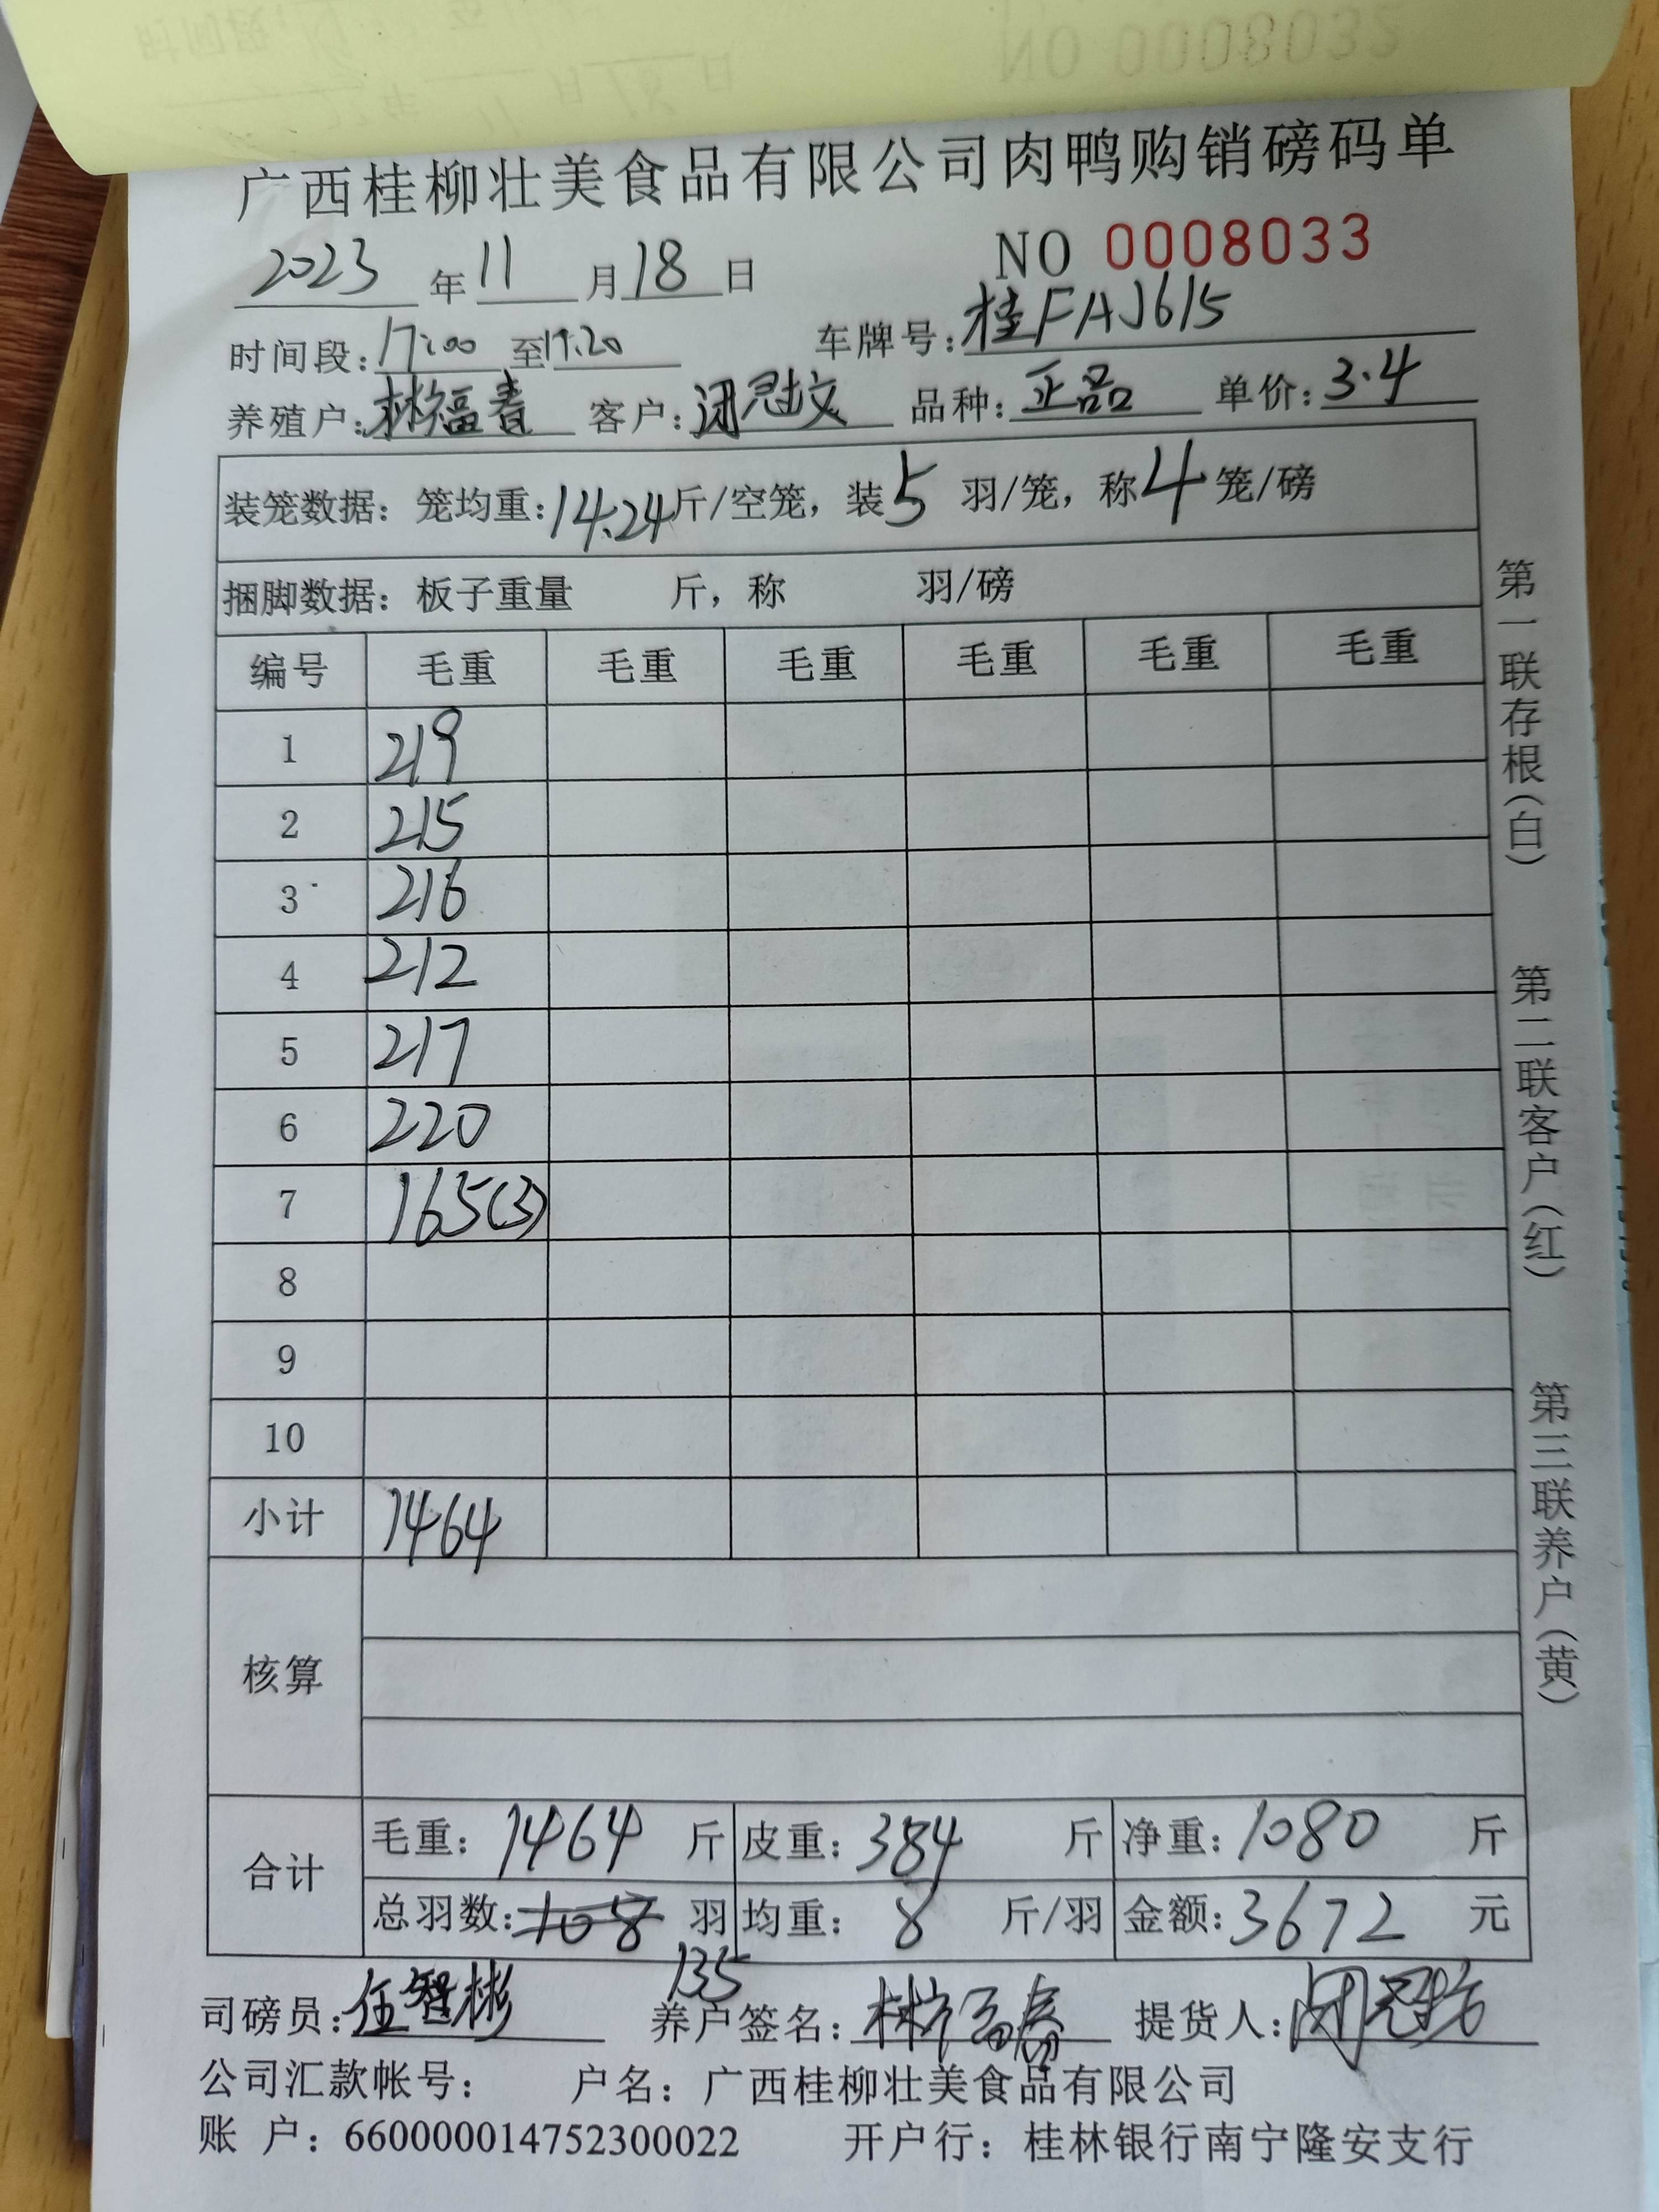 NO 0008032
广西桂柳壮美食品有限公司肉鸭购销磅码单
2023 年 11 月 18 日 NO 0008033
时间段:17:00 至17:20 车牌号:桂FAJ615
养殖户:林福春 客户: 品种:正品 单价:3.4
装笼数据：笼均重:14.24斤/空笼，装5 羽/笼，称4笼/磅
捆脚数据：板子重量 斤，称 羽/磅
编号 毛重 毛重 毛重 毛重 毛重 毛重
1 219
2 215
3 216
4 212
5 217
6 220
7 165(3)
8
9
10
小计 1464
核算
合计 毛重：1464 斤 皮重：384 斤 净重：1080 斤
总羽数：108 羽 均重：8 斤/羽 金额：3672 元
135
司磅员：伍智彬 养户签名：林福春 提货人：
公司汇款帐号： 户名：广西桂柳壮美食品有限公司
账 户：660000014752300022 开户行：桂林银行南宁隆安支行
第一联存根(白) 第二联客户(红) 第三联养户(黄)